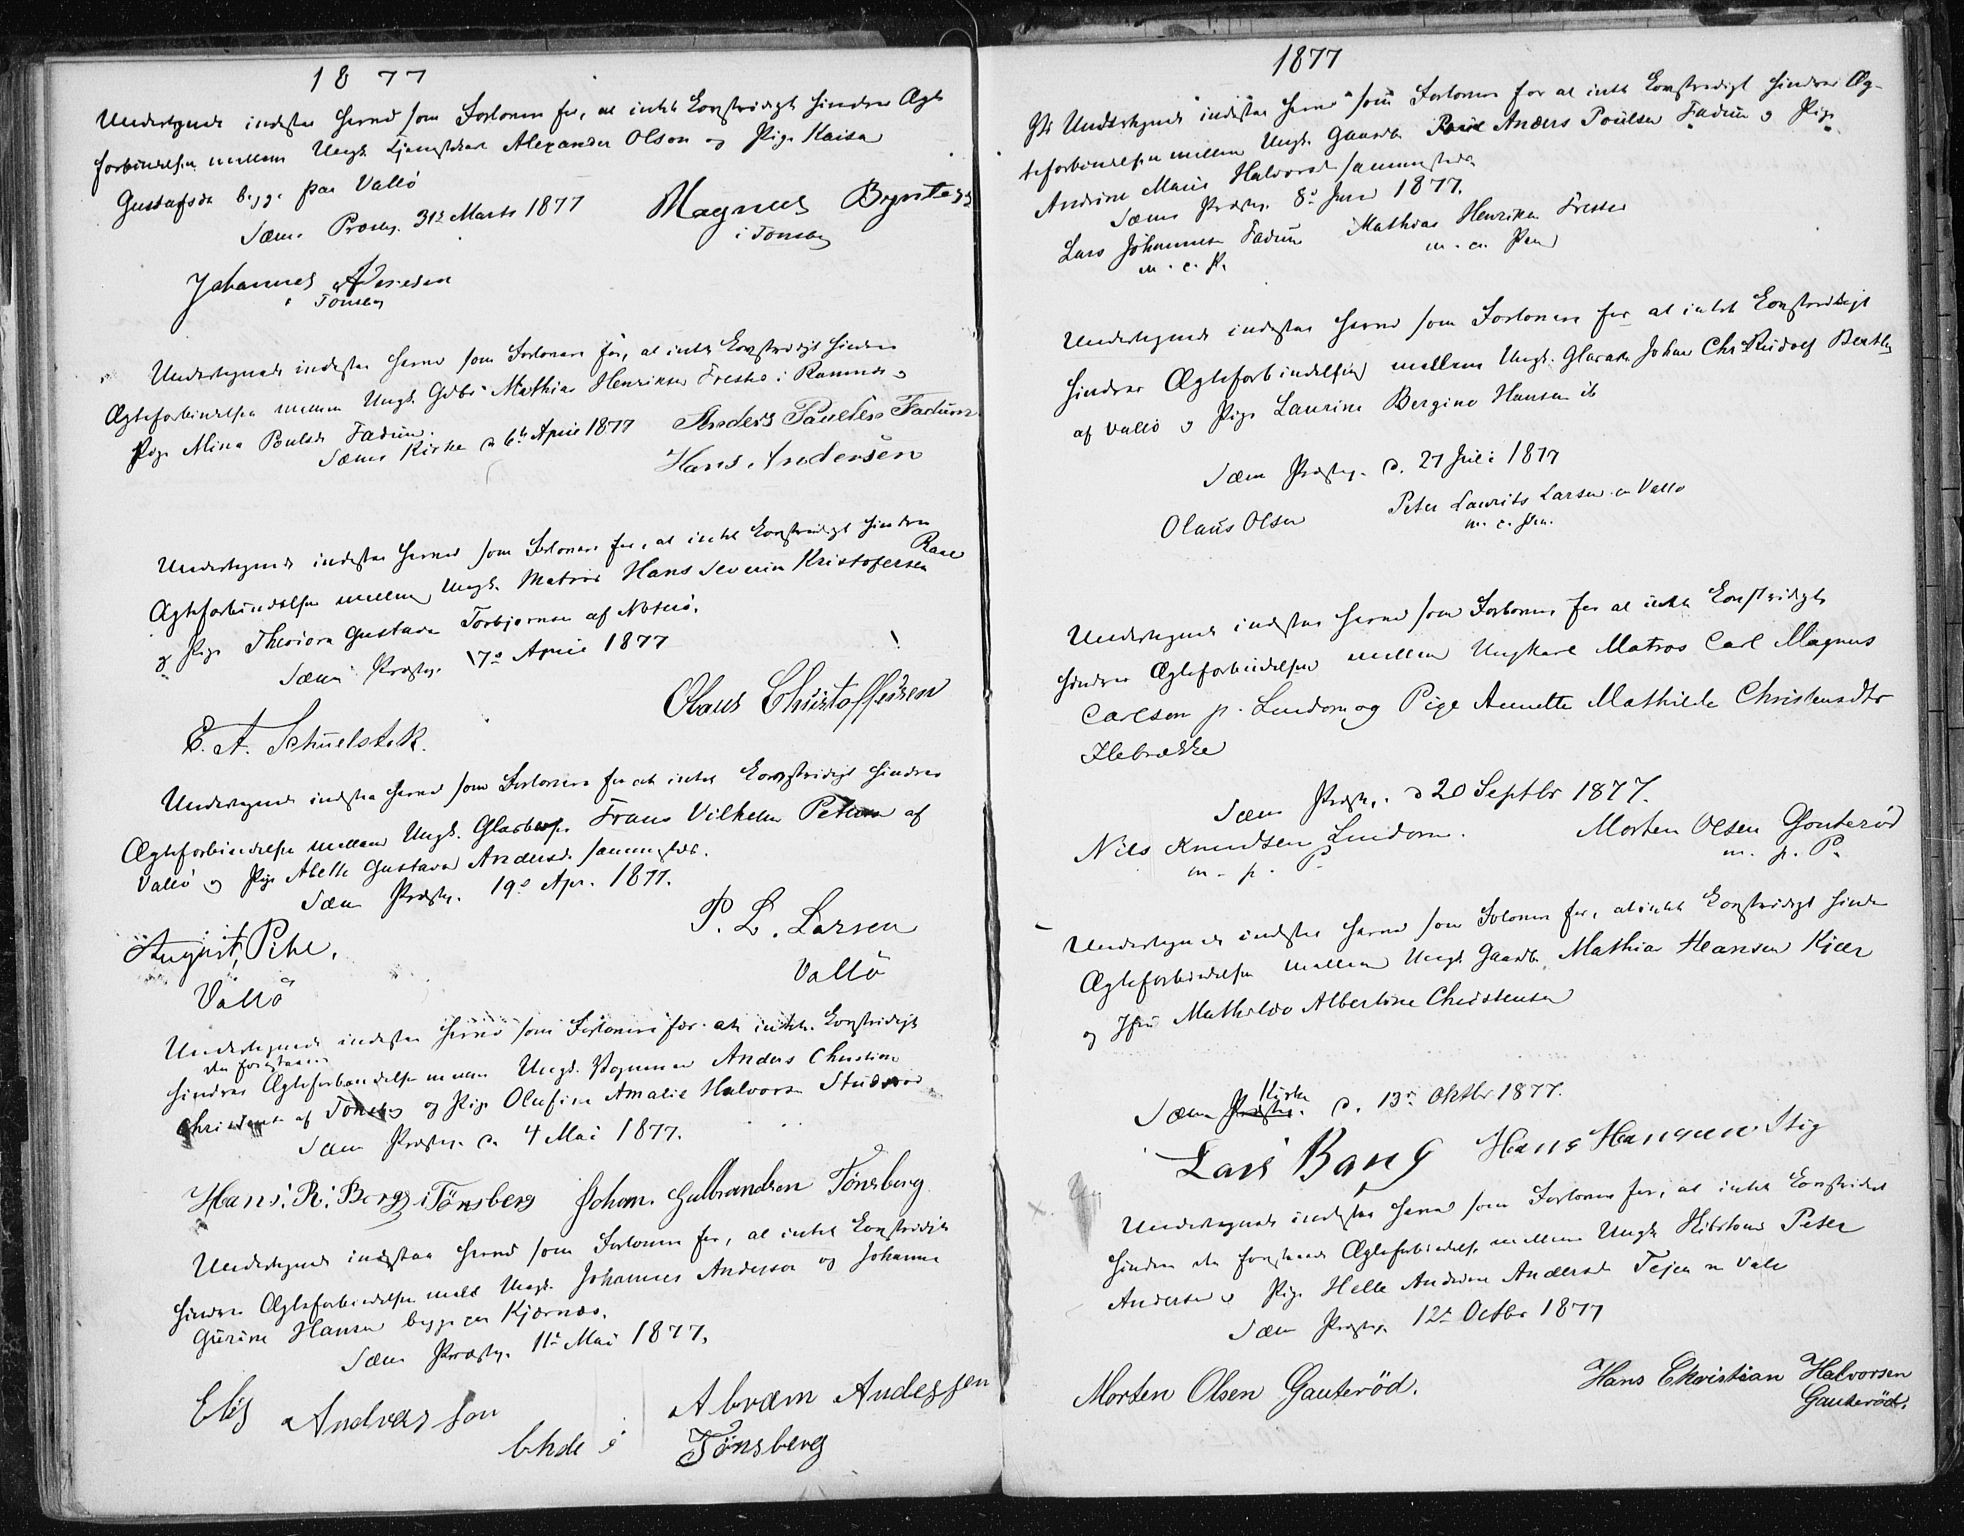 1877
Undertegnede indestaa herved som Forlovere for, at intet Lovstridigt hindrer Ægte
forbindelsen mellem Ungk. Alexander Olson og Pige Kaisa
Gustafsd. begge paa Vallö
Sæms Præsteg. 31te Marts 1877
Magnus
i Tönsberg
Johannes
i Tönsberg
Undertegnede indestaa herved som Forlovere for, at intet Lovstridigt hindrer
Ægteforbindelsen mellem Ungk. Gdbr Mathias Henriksen Freste i Ramnes og
Pige Mina Poulsdr Fadum.
Sæms Kirke d. 6te April 1877
Anders Paulsen Fadum
Hans Andersen
Undertegnede indestaa herved som Forlovere for, at intet Lovstridigt hindrer
Ægteforbindelsen mellem Ungk. Matros Hans Severin Kristofersen
og Pige Gustava Torbjørnsen af Nøterø.
Sæms Præsteg. 17de April 1877
Olaus Christoffersen
E. A. Schuelstok.
Undertegnede indestaa herved som Forlovere for at intet Lovstridigt hindrer
Ægteforbindelsen mellem Ungk. Frans Vilhelm af
Vallö og Pige Abelle Gustava Andersd. sammesteds.
Sæm Præsteg. 19de Apr. 1877.
P. L. Larsen
August Pihl,
Vallö
Vallö
Undertegnede indestaa herved som Forlovere for at intet Lovstridigt
den foregaaende
hindrer Ægteforbindelsen mellem Ungk. Anders Christian
af Tönsberg og Pige Olufine Amalie Halvorsen
Sæm Præsteg. d. 4 Mai 1877.
Hans. R. Berg i Tönsberg Johan. Gulbrandsen Tönsberg
Undertegnede indestaa herved som Forlovere for, at intet Lovstridigt
hindrer Ægteforbindelsen mell. Ungk. Johannes Anderson og Johanne
Gurine Hansen begge paa Kjærnæs.
Sæm Præsteg. 11te Mai 1877.
Elis Andreasson
Abram Andersson
i Tönsberg
1877
Undertegnede indestaa herved som Forlovere for at intet Lovstridigt hindrer Æg-
teforbindelsen mellem Ungk. Gaardbr Anders Poulsen Fadum og Pige
Andrine Marie Halvorsd sammesteds
Sæms Præsteg. 8de Juni 1877.
Lars Johannesen Fadum Mathias Henriksen Freste
m. p. P.
Undertegnede indestaa herved som Forlovere for at intet Lovstridigt
hindrer Ægteforbindelsen mellem Ungk. Johan Chr Rudolf
af Vallö og Pige Laurine Bergine Hansen ib
Sæm Præsteg. d. 27 Juli 1877
Olaus Olsen Peter Laurits Larsen Vallö
Undertegnede indestaa herved som Forlovere for at intet Lovstridigt
hindrer Ægteforbindelsen mellem Ungkarl Matros Carl Magnus
Carlson p. Lindom og Pige Annette Mathilde Christensdtr
Ilebrække
Sæm Præsteg. d 20 Septbr 1877.
Nils Knudsen Lindom. Morten Olsen Gouterød
m. p. P. m. p. P.
Undertegnede indestaa herved som Forlovere for, at intet Lovstridigt hindrer
Ægteforbindelsen mellem Ungk. Gaardbr. Mathias Hansen Kjær
og Jfru Mathilde Albertine Christensen
Kirke
Sæm Præsteg. d. 13de Oktbr 1877.
Lars Bang Hans Hansen Stig
Undertegnede indestaa herved som Forlovere for, at intet Lovstridigt
hindrer den forestaaende Ægteforbindelse mellem Ungk. Peter
Andersen og Pige Helle Andrine Andersd. Vale
Sæm Præsteg. 12te Octbr 1877
Morten Olsen Gauterød.
Hans Christian Halvorsen
Gauterød.